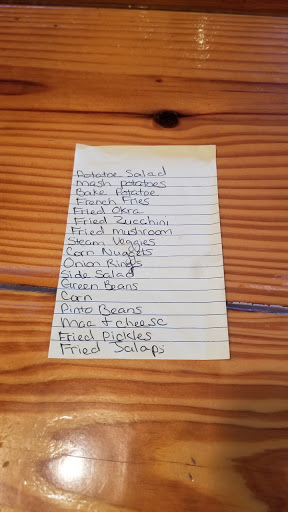 Potatoe Salad
Mash potatoes
Bake Potatoe
French Fries
Fried Okra
Fried Zucchini
Fried mushroom
Steam Veggies
Corn Nuggets
Onion Rings
Side Salad
Green Beans
Corn
Pinto Beans
Mac + cheese
Fried Pickles
Fried Jalaps